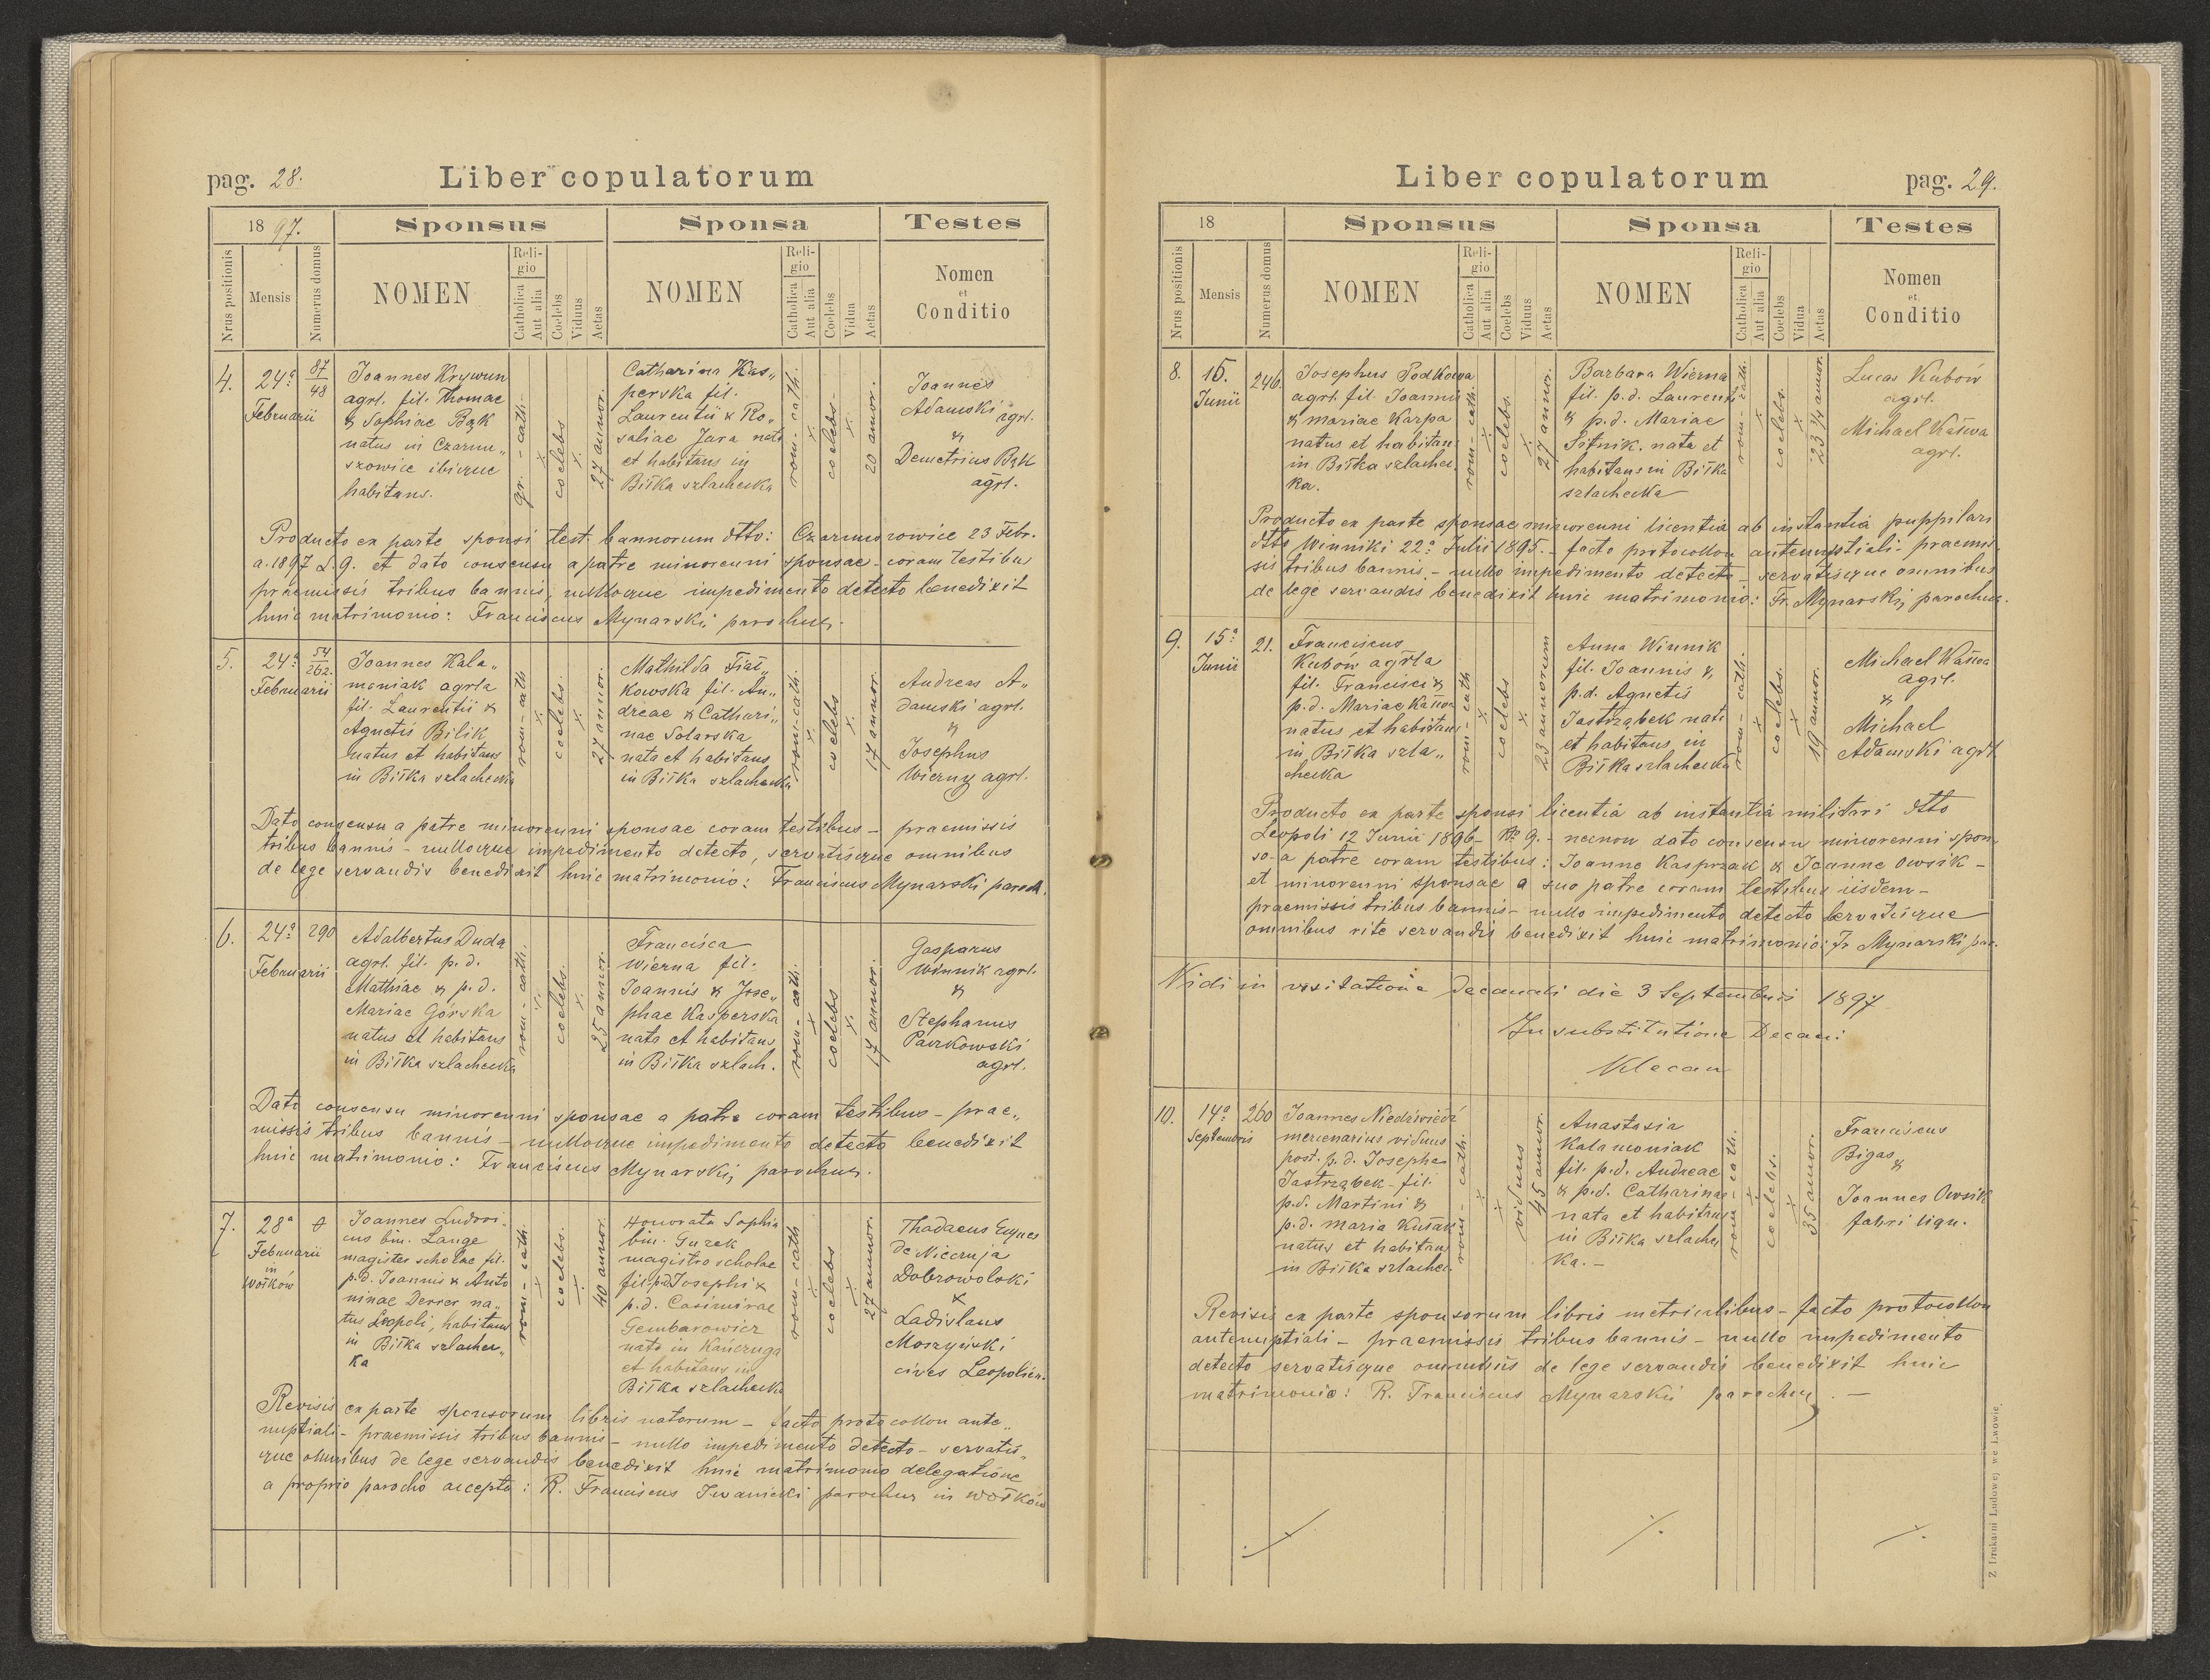 pag. 28.
Liber copulatorum
1897.
Sponsus
Sponsa
Testes
Nrus positionis
Mensis
Numerus domus
NOMEN
Religio
Catholica
Aut alia
Coelebs
Viduus
Aetas
NOMEN
Religio
Catholica
Aut alia
Coelebs
Vidua
Aetas
Nomen
et
Conditio
4.
24a
Februarii
87
48
Joannes Krywun
agrl. fil. Thomae
& Sophiae Bąk
natus in Czarnu„
szowice ibique
habitans.
gr. - cath.
coelebs
27 annor.
Catharina Kas„
perska fil.
Laurentii & Ro„
saliae Jara nata
et habitans in
Biłka szlachecka
rom - cath.
coelebs
20 annor.
Joannes
Adamski agrl.
&
Demetrius Bąk
agrl.
Producto ex parte sponsi test. bannorum dtto: Czarnuszowice 23 Febr.
a. 1897 L. 9. et dato consensu a patre minorenni sponsae - coram testibus
praemissis tribus bannis, nulloque impedimento detecto benedixit
huic matrimonio: Franciscus Mynarski, parochus.
5.
24a
Februarii
54
262.
Joannes Kala„
moniak agrla
fil. Laurentii &
Agnetis Bilik
natus et habitans
in Biłka szlachecka
rom - cath
coelebs.
27 annor.
Mathilda Fiał„
kowska fil. An„
dreae & Cathari„
nae Solarska
nata et habitans
in Biłka szlachecka
rom - cath.
coelebs
17 annor.
Andreas A„
damski agrl.
&
Josephus
Wierny agrl.
Dato consensu a patre minorenni sponsae coram testibus - praemissis
tribus bannis - nulloque impedimento detecto, servatisque omnibus
de lege servandis benedixit huic matrimonio: Franciscus Mynarski paroch.
6.
24a
Februarii
290
Adalbertus Duda
agrl. fil. p. d.
Mathiae & p. d.
Mariae Górska
natus et habitans
in Biłka szlachecka
rom - cath.
coelebs.
25 annor.
Francisca
Wierna fil.
Joannis & Jose„
phae Kasperska
nata et habitans
in Biłka szlach.
rom - cath.
coelebs
17 annor.
Gasparus
Winnik agrl.
&
Stephanus
Paczkowski
agrl.
Dato consensu minorenni sponsae a patre coram testibus - prae„
missis tribus bannis - nulloque impedimento detecto benedixit
huic matrimonio: Franciscus Mynarski, parochus.
7.
28a
Februarii
in
Wołków
Joannes Ludovi„
cus bin. Lange
magister scholae fil.
p. d. Joannis & Anto
ninae Derrer na„
tus Leopoli, habitans
in Biłka szlachec„
ka
rom - cath.
coelebs.
40 annor.
Honorata Sophia
bin. Guzek
magistro scholae
fil. p.d. Josephi &
p. d. Casimirae
Gembarowicz
nata in Kańczuga
et habitans in
Biłka szlachecka
rom - cath
coelebs
27 annor.
Thadaeus Eques
de Nieczuja
Dobrowolski
&
Ladislaus
Moszyński
cives Leopolien.
Revisis ex parte sponsorum libris natorum - facto protocollon ante„
nuptiali - praemissis tribus bannis - nullo impedimento detecto - servatis„
que omnibus de lege servandis benedixit huic matrimonio delegatione
a proprio parocho accepta: R. Franciscus Iwanicki parochus in Wołków
Liber copulatorum
pag. 29.
18
Sponsus
Sponsa
Testes
Nrus positionis
Mensis
Numerus domus
NOMEN
Religio
Catholica
Aut alia
Coelebs
Viduus
Aetas
NOMEN
Religio
Catholica
Aut alia
Coelebs
Vidua
Aetas
Nomen
et
Conditio
8.
15.
Junii
246.
Josephus Podkowa
agrl. fil. Joannis
& Mariae Karpa
natus et habitans
in Biłka szlachec
ka.
rom - cath.
coelebs.
27 annor.
Barbara Wierna
fil. p. d. Laurenti
& p. d. Mariae
Sitnik. nata et
habitans in Biłka
szlachecka
rom - cath.
coelebs.
23 3/4 annor.
Lucas Kubów
agrl.
Michael Kaśwa
agrl.
Producto ex parte sponsae minorenni licentia ab instantia puppilari
dtto Winniki 22a Julii 1895. - facto protocollon antenuptiali - praemis„
sis tribus bannis - nullo impedimento detecto - servatisque omnibus
de lege servandis benedixit huic matrimonio: Fr. Mynarski, parochus.
9.
15a
Junii
21.
Franciscus
Kubów agrla
fil. Francisci &
p. d. Mariae Kaśwa
natus et habitans
in Biłka szla„
checka
rom - cath
coelebs
23 annorum
Anna Winnik
fil. Joannis &
p. d. Agnetis
Jastrząbek nata
et habitans in
Biłka szlachecka
rom - cath.
coelebs.
19 annor.
Michael Kaśwa
agrl.
&
Michael
Adamski agrl
Producto ex parte sponsi licentia ab instantia militari dtto
Leopoli 12 Junii 1896 - No 9. - necnon dato consensu minorenni spon„
so - a patre coram testibus: Joanne Kasprzak & Joanne Owsik -
et minorenni sponsae a suo patre coram testibus iisdem -
praemissis tribus bannis - nullo impedimento detecto servatisque
omnibus rite servandis benedixit huic matrimonio: Fr Mynarski par.
Vidi in visitatione decanali die 3 Septembris 1897
In substitutione Decani
Klecan
10.
14a
Septembris
260
Joannes Niedźwiedź
mercenarius viduus
post. p. d. Josepha
Jastrząbek - fil.
p.d. Martini &
p. d. Maria Kuśak
natus et habitans
in Biłka szlachec.
rom - cath.
viduus
45 annor.
Anastasia
Kalamoniak
fil. p. d. Andreae
& p. d. Catharinae
nata et habitans
in Biłka szlachec
ka. -
rom - cath.
coelebs.
35 annor.
Franciscus
Bigas
&
Joannes Owsik
fabri lign.
Revisis ex parte sponsorum libris metricalibus - facto protocollon
antenuptiali - praemissis tribus bannis - nullo impedimento
detecto servatisque omnibus de lege servandis benedixit huic
matrimonio: R. Franciscus Mynarski parochus. -
Z Drukarni Ludowej we Lwowie.